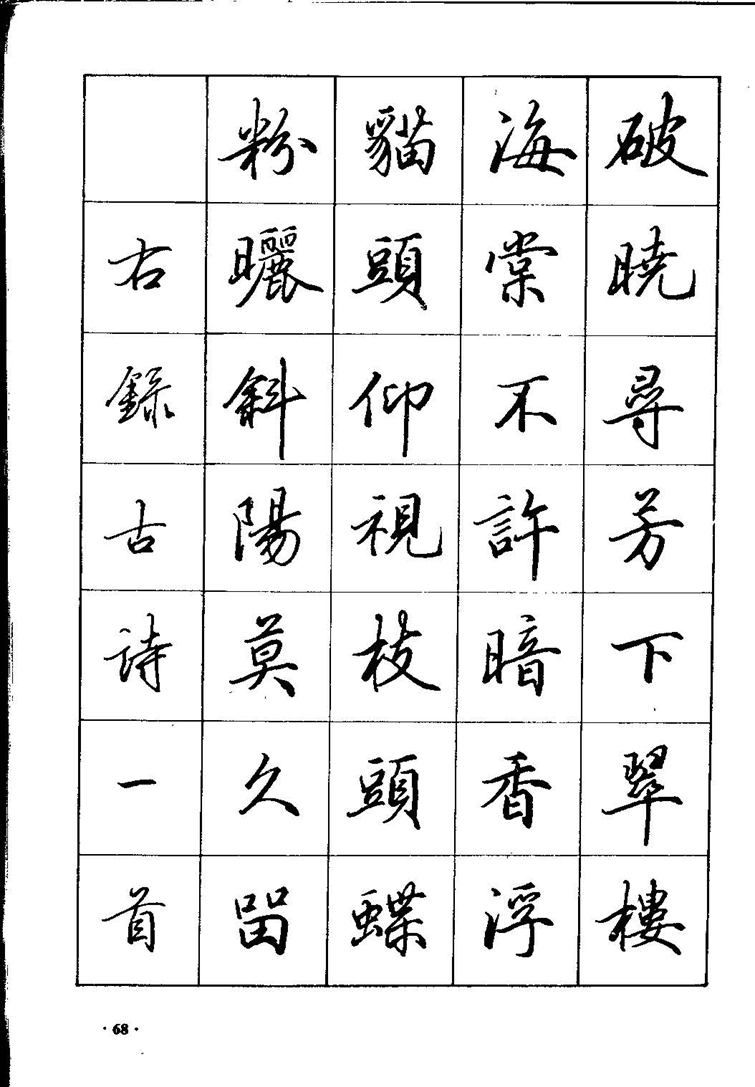 破曉尋芳下翠樓
海棠不許暗香浮
貓頭仰視枝頭蝶
粉曬斜陽莫久留
右錄古詩一首
·68·